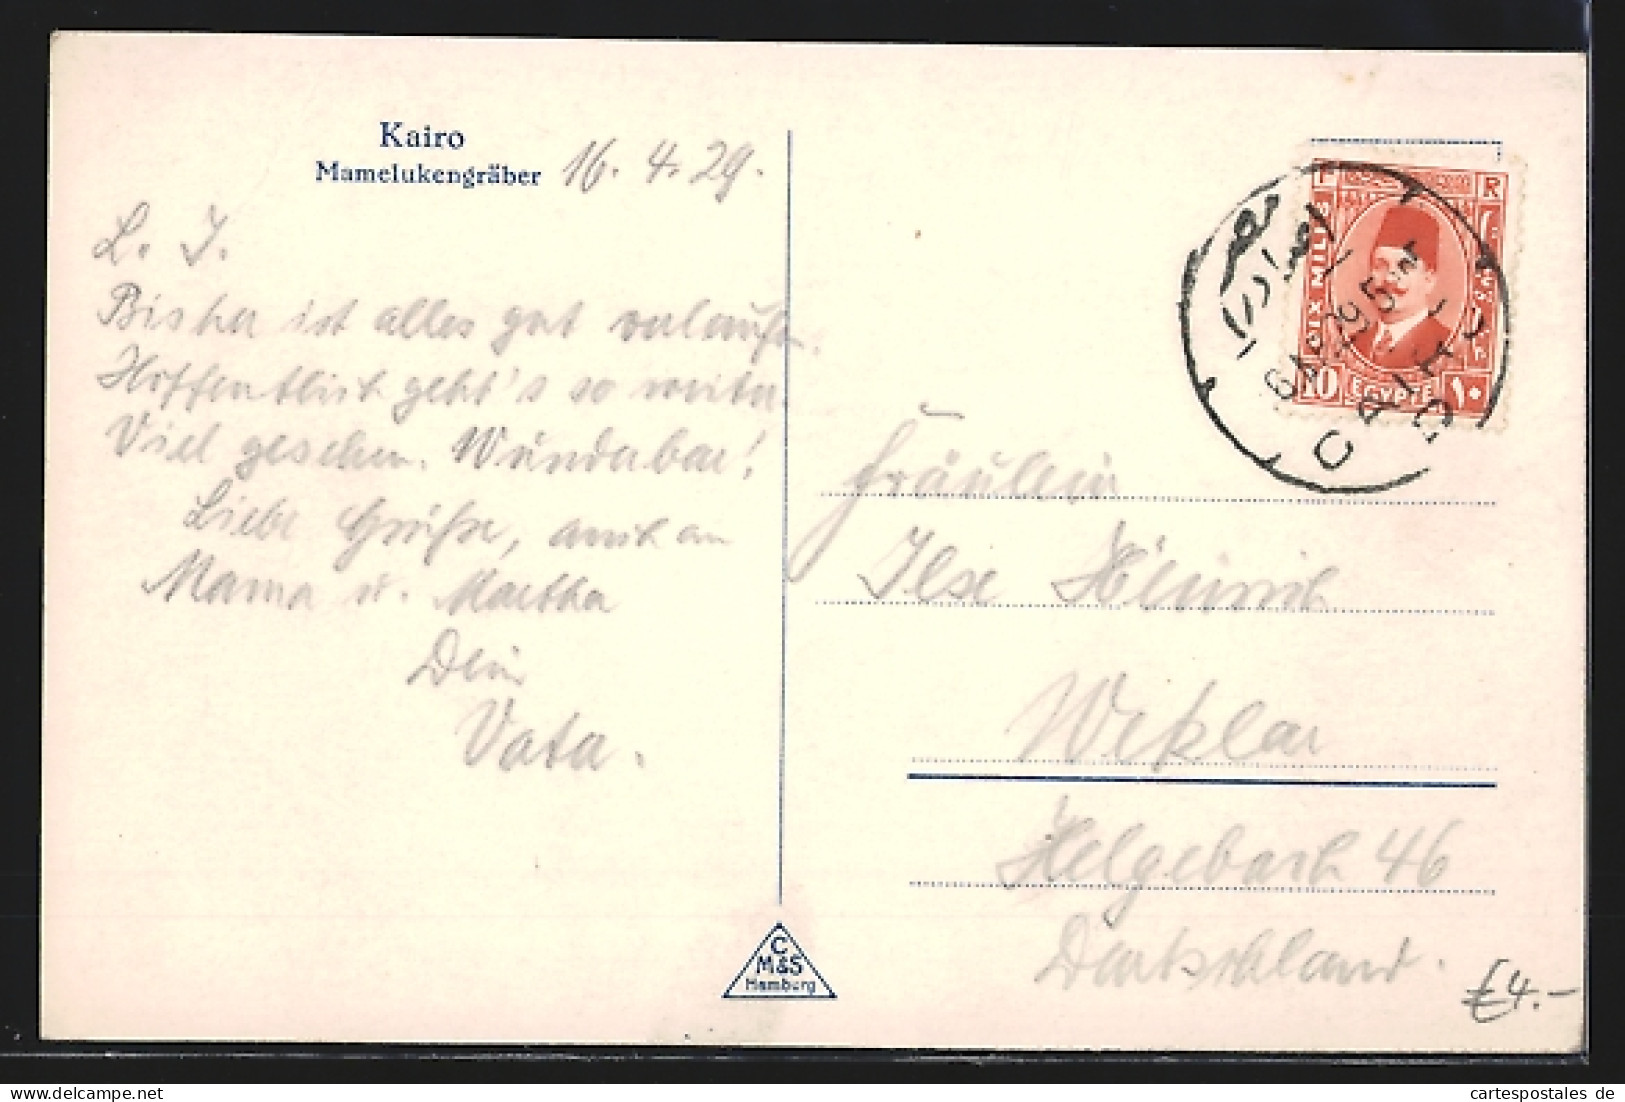 Kairo
Mamelukengräber
16. 4. 29.
L. I.
Bisher ist alles gut verlaufen.
Hoffentlich geht's so weiter
Viel gesehen. Wunderbar!
Liebe Grüße, auch an
Mama u. Martha
Dein
Vater.
C
M&S
Hamburg
F R
DIX MILLS
10 EGYPTE ١٠
CAIRO
Fräulein
Ilse Heinrich
Wetzlar
Helgebach 46
Deutschland.
€4.-
delcampe.net
cartespostales de